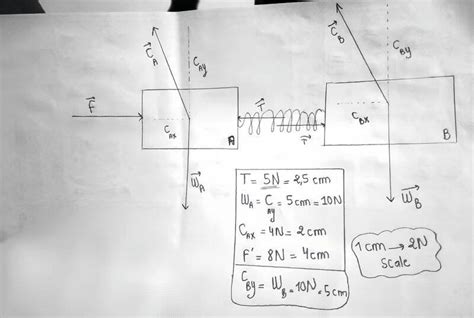 C⃗_A
C_Ay
C⃗_B
C_By
F⃗
T⃗
C_Ax
A
T⃗
C_Bx
B
W⃗_A
W⃗_B
T = 5N = 2,5 cm
W_A = C_Ay = 5cm = 10N
C_Ax = 4N = 2cm
F' = 8N = 4cm
C_By = W_B = 10N = 5cm
1cm → 2N
scale